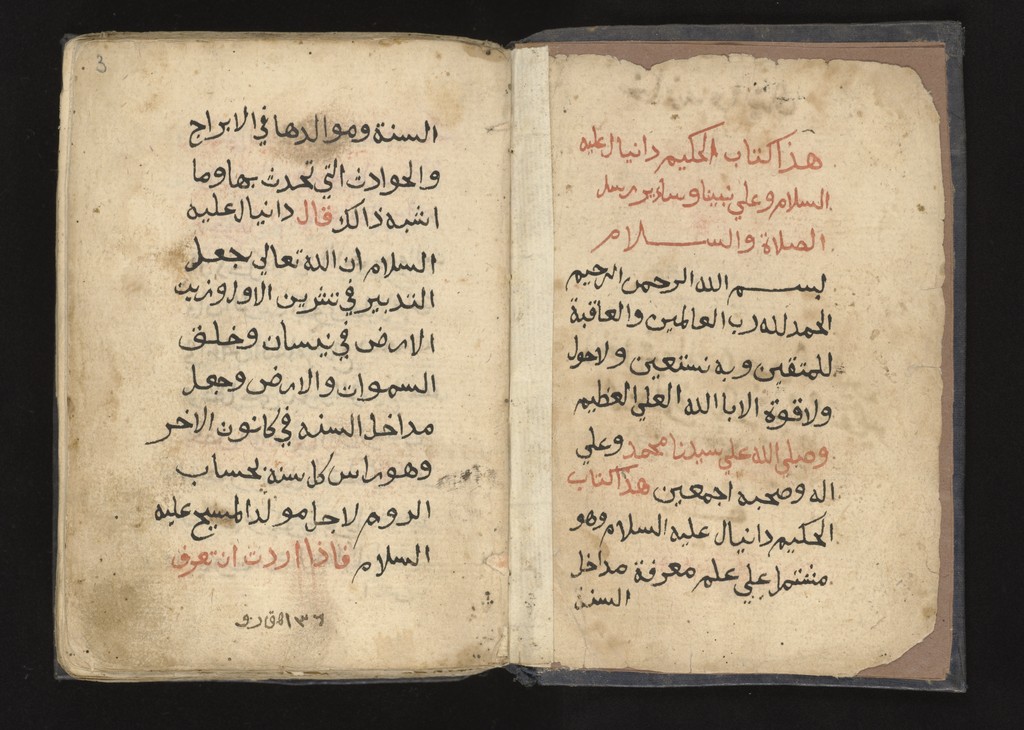 هذا كتاب الحكيم دانيال عليه
السلام وعلي نبينا وساير رسل
الصلاة والســـلام
بســـم الله الرحمن الرحيم
الحمد لله رب العالمين والعاقبة
للمتقين وبه نستعين ولا حول
ولا قوة الا بالله العلي العظيم
وصلى الله علي سيدنا محمد وعلي
اله وصحبه اجمعين هذا كتاب
الحكيم دانيال عليه السلام وهو
مشتمل علي علم معرفة مداخل
السنة
3
السنة وموالدها في الابراج
والحوادث التي تحدث بها وما
اشبه ذالك قال دانيال عليه
السلام ان الله تعالى جعل
التدبير في تشرين الاول وزينت
الارض في نيسان وخلق
السموات والارض وجعل
مداخل السنه في كانون الاخر
وهو راس كل سنه بحساب
الروم لاجل مولد المسيح عليه
السلام فاذا اردت ان تعرف